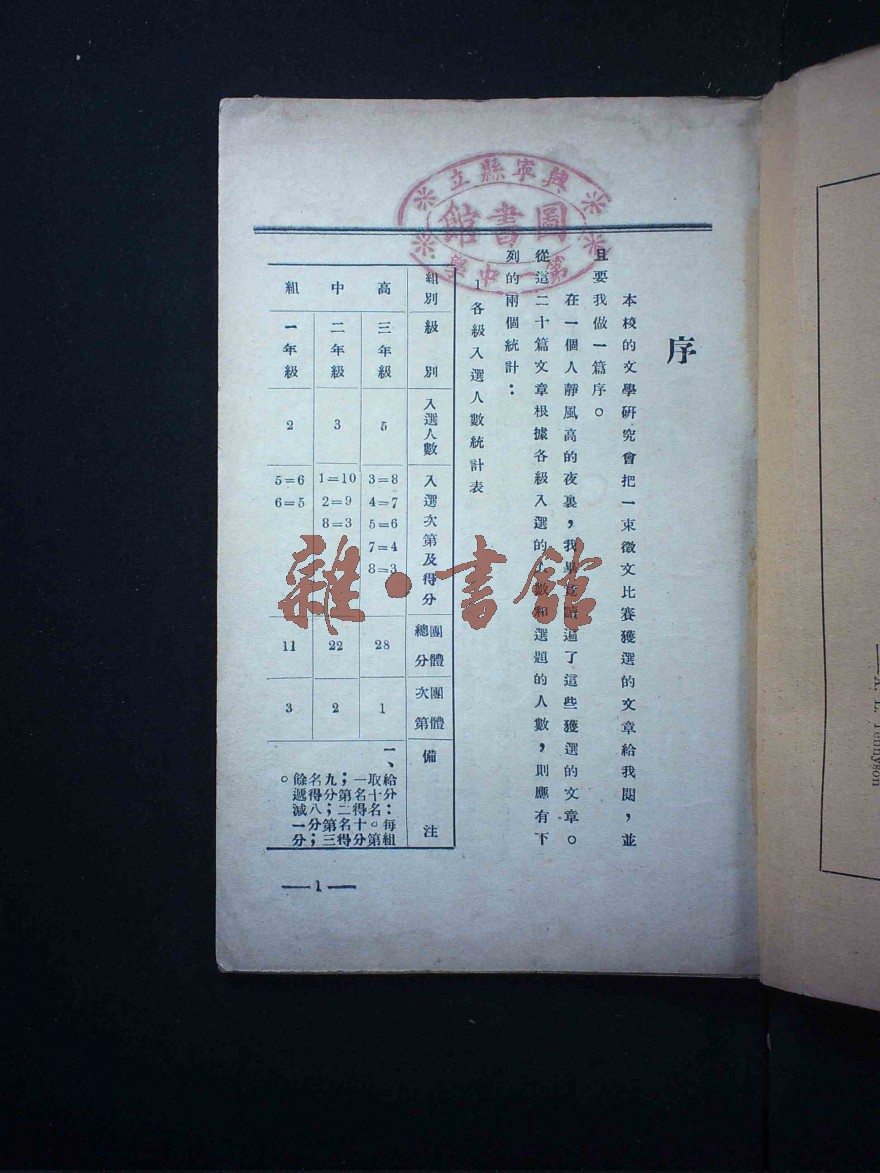 興寧縣立
圖書館
第一中學
序
本校的文學研究會把一束徵文比賽獲選的文章給我閱，並
且要我做一篇序。
在一個人靜風高的夜裏，我畢竟讀遍了這些獲選的文章。
從這二十篇文章根據各級入選的人數和選題的人數，則應有下
列的兩個統計：
1 各級入選人數統計表
組別 級別 入選人數 入選次第及得分 團體總分 團體次第 備注
高 三年級 5 3=8 4=7 5=6 7=4 8=3 28 1
中 二年級 3 1=10 2=9 8=3 22 2
組 一年級 2 5=6 6=5 11 3
一、
給分：每組
取十名。第
一名得十分
；第二名得
九分；第三
名得八分；
餘遞減一分
。
—1—
雜·書館
X. L. Tennyson